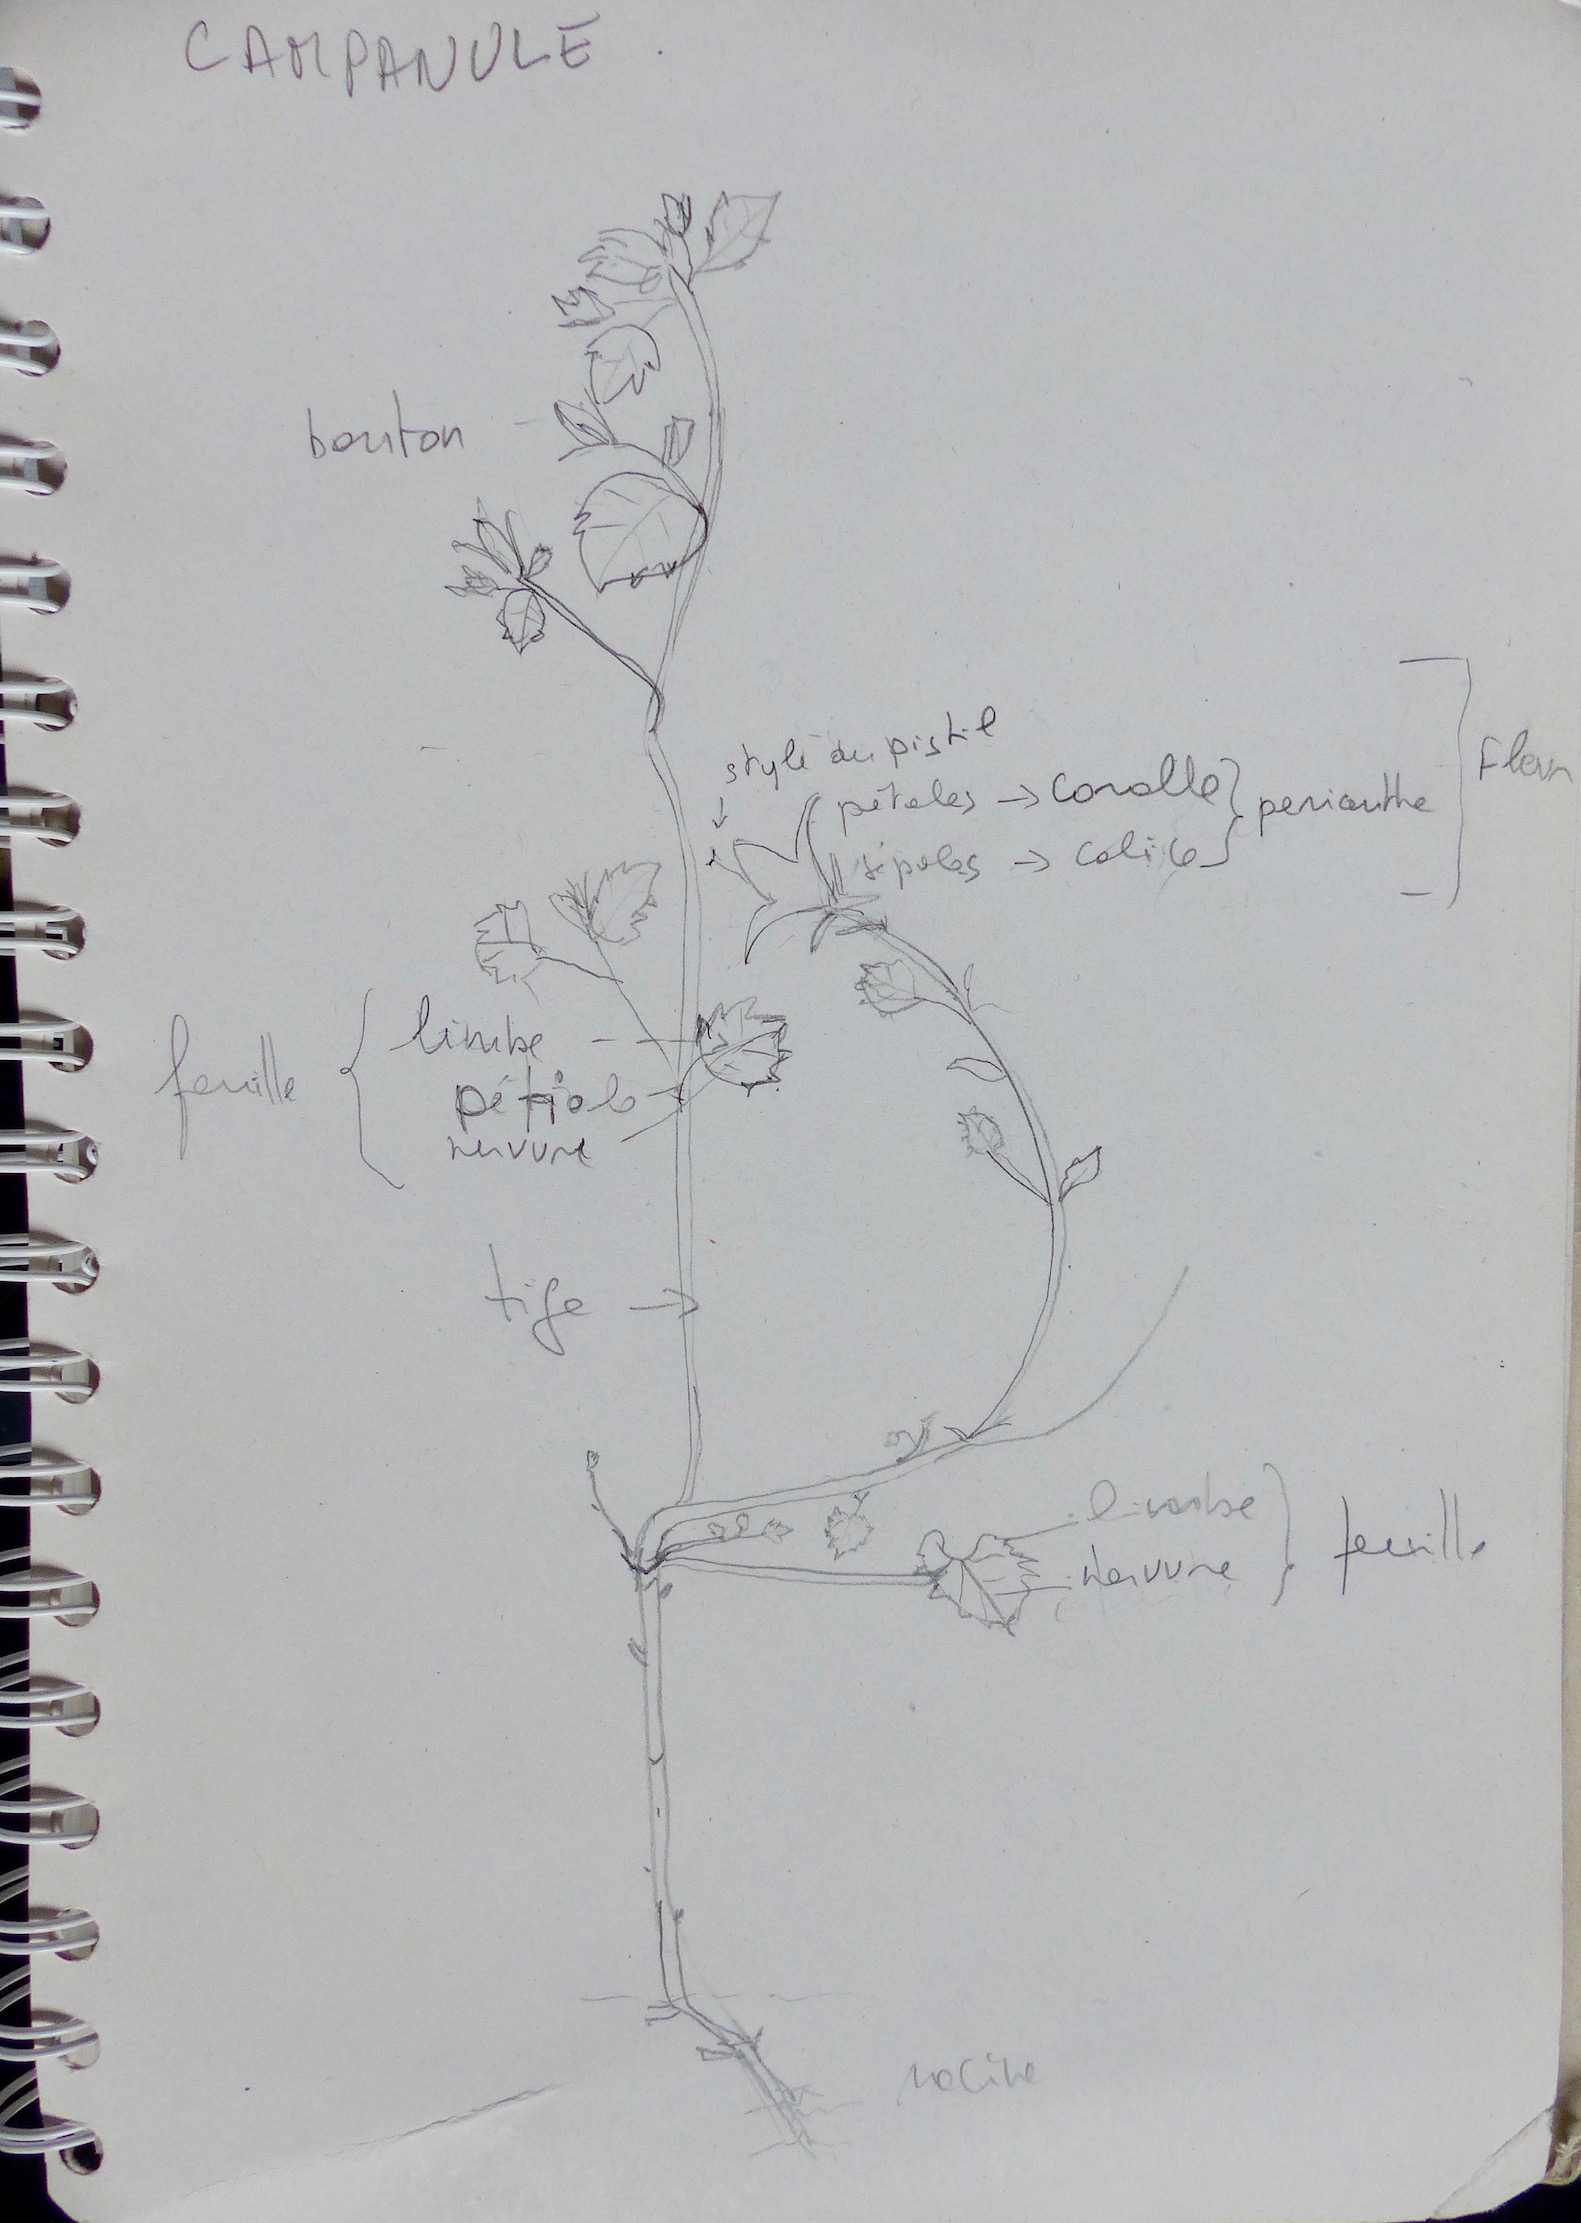 CAMPANULE
bouton
style du pistil
pétales → Corolle
sépales → calice
perianthe
Fleur
feuille
limbe
pétiole
nervure
tige →
limbe
nervure
feuille
racine